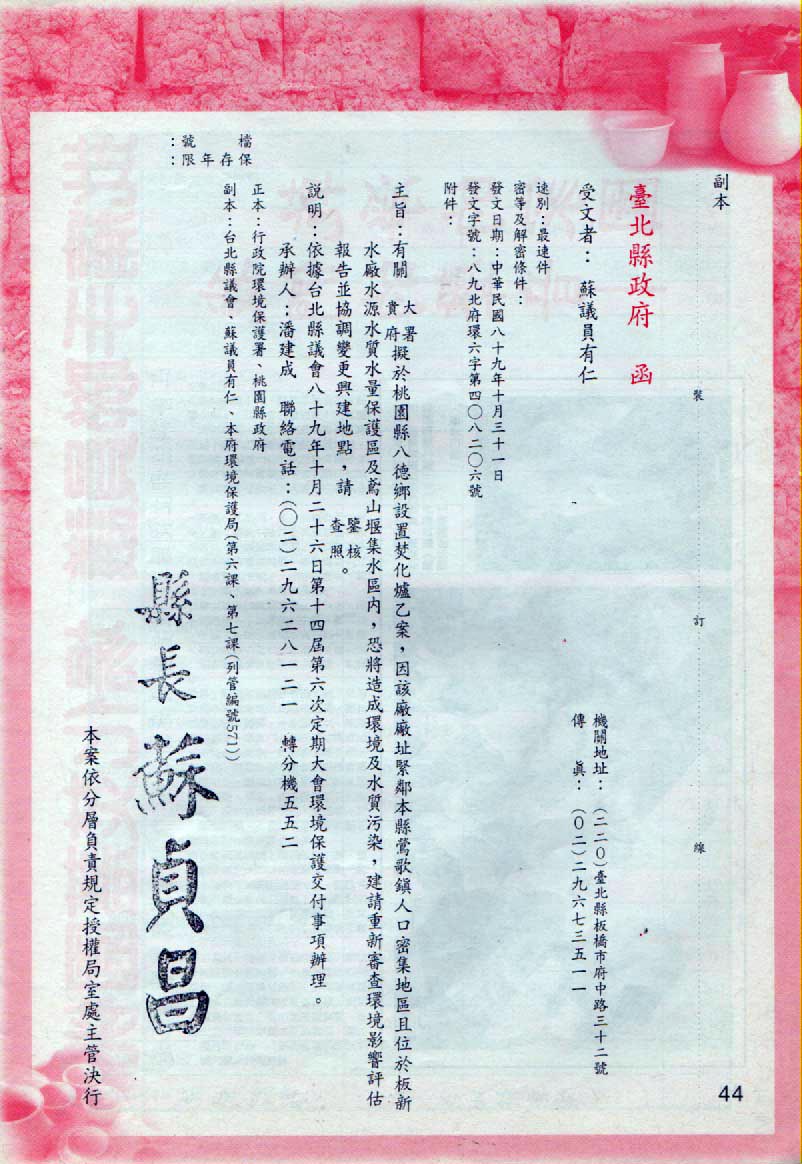 檔　號：
保存年限：
副本
臺北縣政府　函
受文者：蘇議員有仁
機關地址：(二二〇)臺北縣板橋市府中路三十二號
傳　真：(〇二)二九六七三五一一
速別：最速件
密等及解密條件：
發文日期：中華民國八十九年十月三十一日
發文字號：八九北府環六字第四〇八二〇六號
附件：
主旨：有關　大署貴府擬於桃園縣八德鄉設置焚化爐乙案，因該廠廠址緊鄰本縣鶯歌鎮人口密集地區且位於板新
水廠水源水質水量保護區及鳶山堰集水區內，恐將造成環境及水質污染，建請重新審查環境影響評估
報告並協調變更興建地點，請　鑒核查照。
說明：依據台北縣議會八十九年十月二十六日第十四屆第六次定期大會環境保護交付事項辦理。
承辦人：潘建成　聯絡電話：(〇二)二九六二八一二一　轉分機五五二
正本：行政院環境保護署、桃園縣政府
副本：台北縣議會、蘇議員有仁、本府環境保護局(第六課、第七課(列管編號571))
縣長　蘇貞昌
本案依分層負責規定授權局室處主管決行
裝
訂
線
44